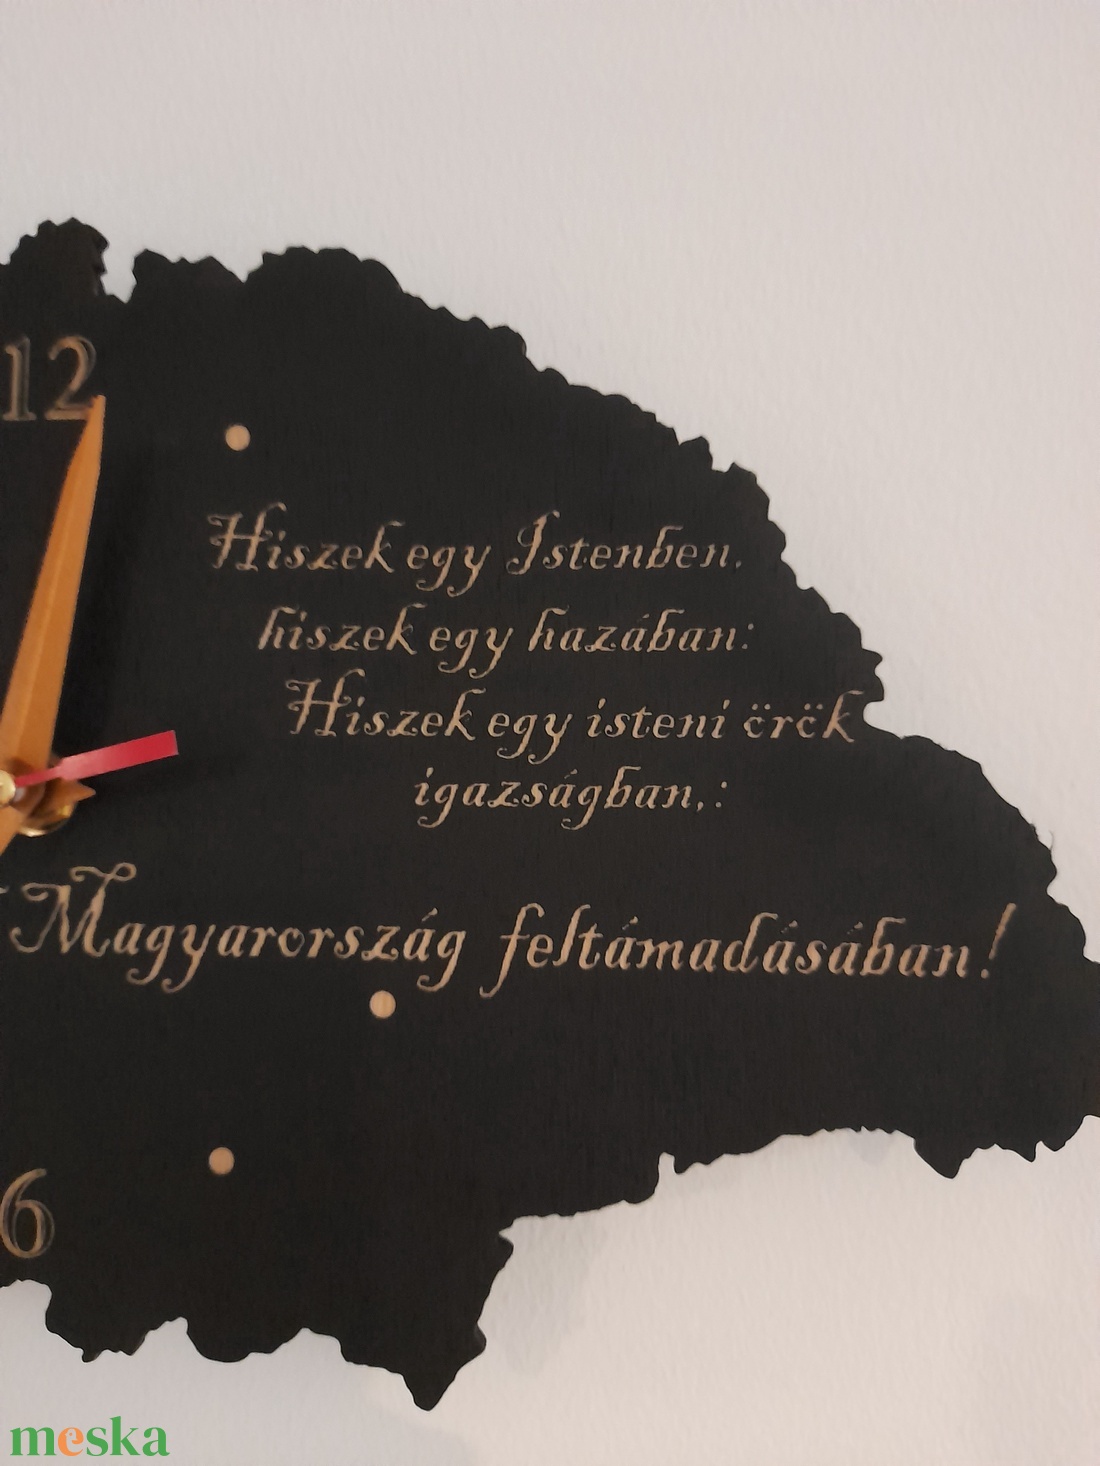 12
Hiszek egy Istenben,
hiszek egy hazában:
Hiszek egy isteni örök
igazságban,:
Magyarország feltámadásában!
6
meska